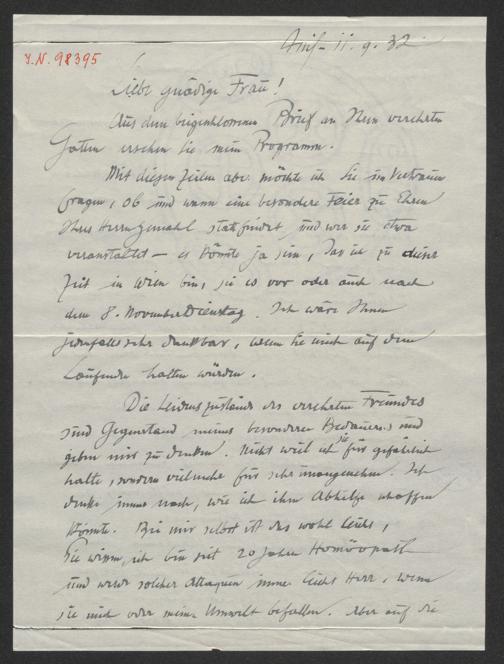 J.N. 98395
11.9.32
Liebe gnädige Frau!
Aus dem beigeschlossenen Brief an Ihren verehrten
Gatten ersehen Sie mein Programm.
Mit diesen Zeilen aber möchte ich Sie im Vertrauen
fragen, ob und wann eine besondere Feier zu Ehren
Ihres Herrn Gemahl stattfindet und wer sie etwa
veranstaltet — es könnte ja sein, dass ich zu dieser
Zeit in Wien bin, sei es vor oder auch nach
dem 8. November Dienstag. Ich wäre Ihnen
jedenfalls sehr dankbar, wenn Sie mich auf dem
Laufenden halten würden.
Die Leidenszustände des verehrten Freundes
sind Gegenstand meines besonderen Bedauerns und
geben mir zu denken. Nicht weil ich sie für gefährlich
halte, sondern vielmehr für sehr unangenehm. Ich
denke immer nach, wie ich ihm Abhilfe schaffen
könnte. Bei mir selbst ist das wohl leicht,
Sie wissen, ich bin seit 20 Jahren Homöopath
und werde solcher Attaquen immer leicht Herr, wenn
sie mich oder meine Umwelt befallen. Aber auf die